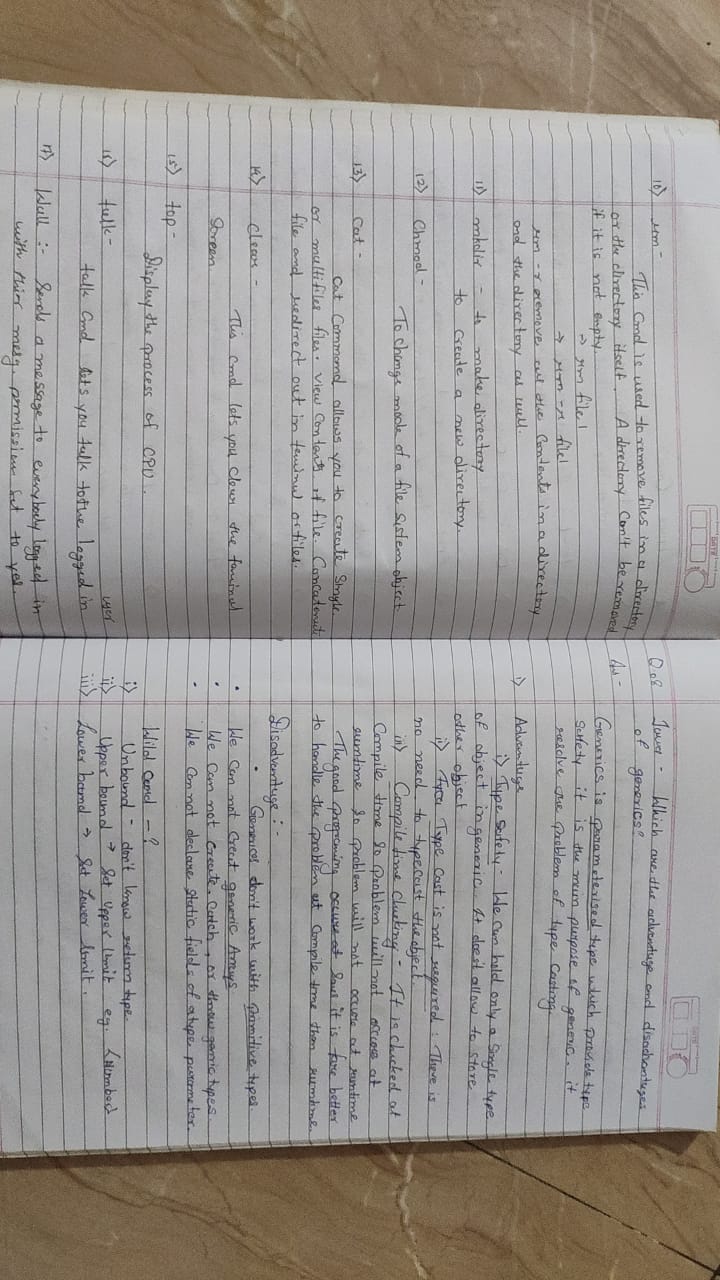 DATE
10) rm -
This Cmd is used to remove files in a directory
or the directory itself. A directory Can't be removed
if it is not empty.
→ rm file 1
→ rm -r file1
rm -r remove all the Contents in a directory
and the directory as well.
11) mkdir - to make directory
to create a new directory.
12) Chmod -
To change mode of a file System object
13) Cat -
Cat Command allows you to create Single
or multifiles files. view Contents of file. Concatenate
file and redirect out in teminal or files.
14) Clear -
This cmd lets you Clear the taminal
Screen
15) top -
Display the process of CPU.
16) talk -
user
talk Cmd lets you talk to the logged in
17) Wall :- Sends a message to everybody logged in
with thier mesg. permission Set to yes.
DATE
Q.08 Java - Which are the advantage and disadvantages
of generics?
Ans -
Generics is parameterised type which provide type
Safety it is the main purpose of generic. it
resolve the Problem of type Casting.
i) Advantage
i) Type Safety - We Can hold only a Single type
of object in generic. It does't allow to store
other object
ii) Type Cast is not required : There is
no need to typecast the object.
iii) Compile time Checking - It is checked at
Compile time So Problem will not occure at
rumtime So problem will not occure at runtime
The good programing occure at Says it is fare better
to handle the problem at Compile time than rumtime.
Disadvantage :-
• Generices don't work with primitive types.
• We Can not Creat generic Arrays
• We Can not Create, Catch, or throw genric types.
• We Can not declare Static fields of a type parameter.
Wild Card - ?
i) Unbound - don't know return type.
ii) Upper bound → Set Upper limit eg. <Number>
iii) Lower bound → Set Lower limit.